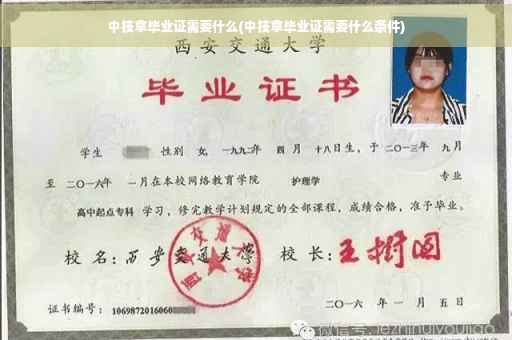 中技拿毕业证需要什么(中技拿毕业证需要什么条件)
西安交通大学
毕业证书
学生 性别 女, 一九九二年 四 月 十八日生, 于 二〇一三年 九月
至 二〇一六年 一月在本校网络教育学院 护理学 专业
高中起点专科 学习, 修完教学计划规定的全部课程, 成绩合格, 准予毕业。
校 名: 西安交通大学 校 长: 王树国
西安交通大学
证书编号: 1069872016060
二〇一六 年 一 月 五 日
微信号: jezhinuiyoujiao